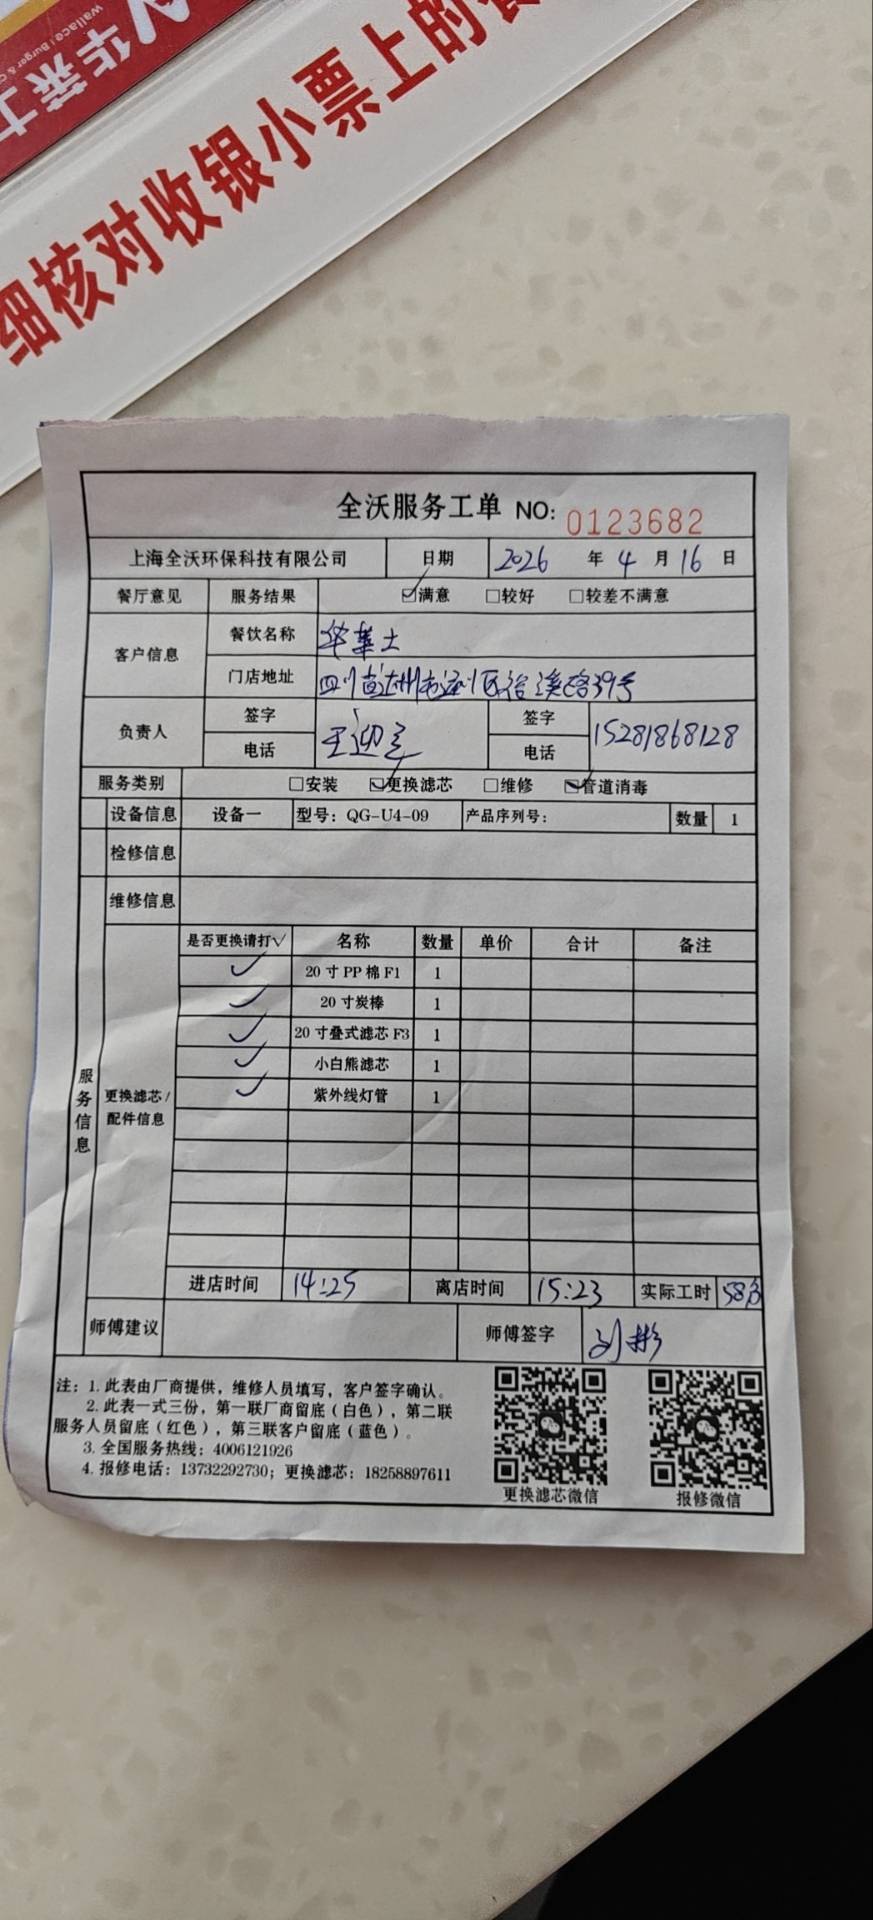 华莱士
Wallace | Burger &
细核对收银小票上的
全沃服务工单 NO: 0123682
上海全沃环保科技有限公司 日期 2026 年 4 月 16 日
餐厅意见 服务结果 ☑满意 □较好 □较差不满意
客户信息 餐饮名称 华莱士
门店地址 四川省达州市达川区 溪路39号
负责人 签字 王迎 签字 15281868128
电话 电话
服务类别 □安装 ☑更换滤芯 □维修 ☑管道消毒
设备信息 设备一 型号：QG-U4-09 产品序列号： 数量 1
检修信息
维修信息
服务信息
更换滤芯/配件信息
是否更换请打√ 名称 数量 单价 合计 备注
√ 20寸PP棉F1 1
√ 20寸炭棒 1
√ 20寸叠式滤芯F3 1
√ 小白熊滤芯 1
√ 紫外线灯管 1
进店时间 14:25 离店时间 15:23 实际工时 58分
师傅建议 师傅签字 刘彬
注：1. 此表由厂商提供，维修人员填写，客户签字确认。
2. 此表一式三份，第一联厂商留底（白色），第二联
服务人员留底（红色），第三联客户留底（蓝色）。
3. 全国服务热线：4006121926
4. 报修电话：13732292730；更换滤芯：18258897611
更换滤芯微信 报修微信